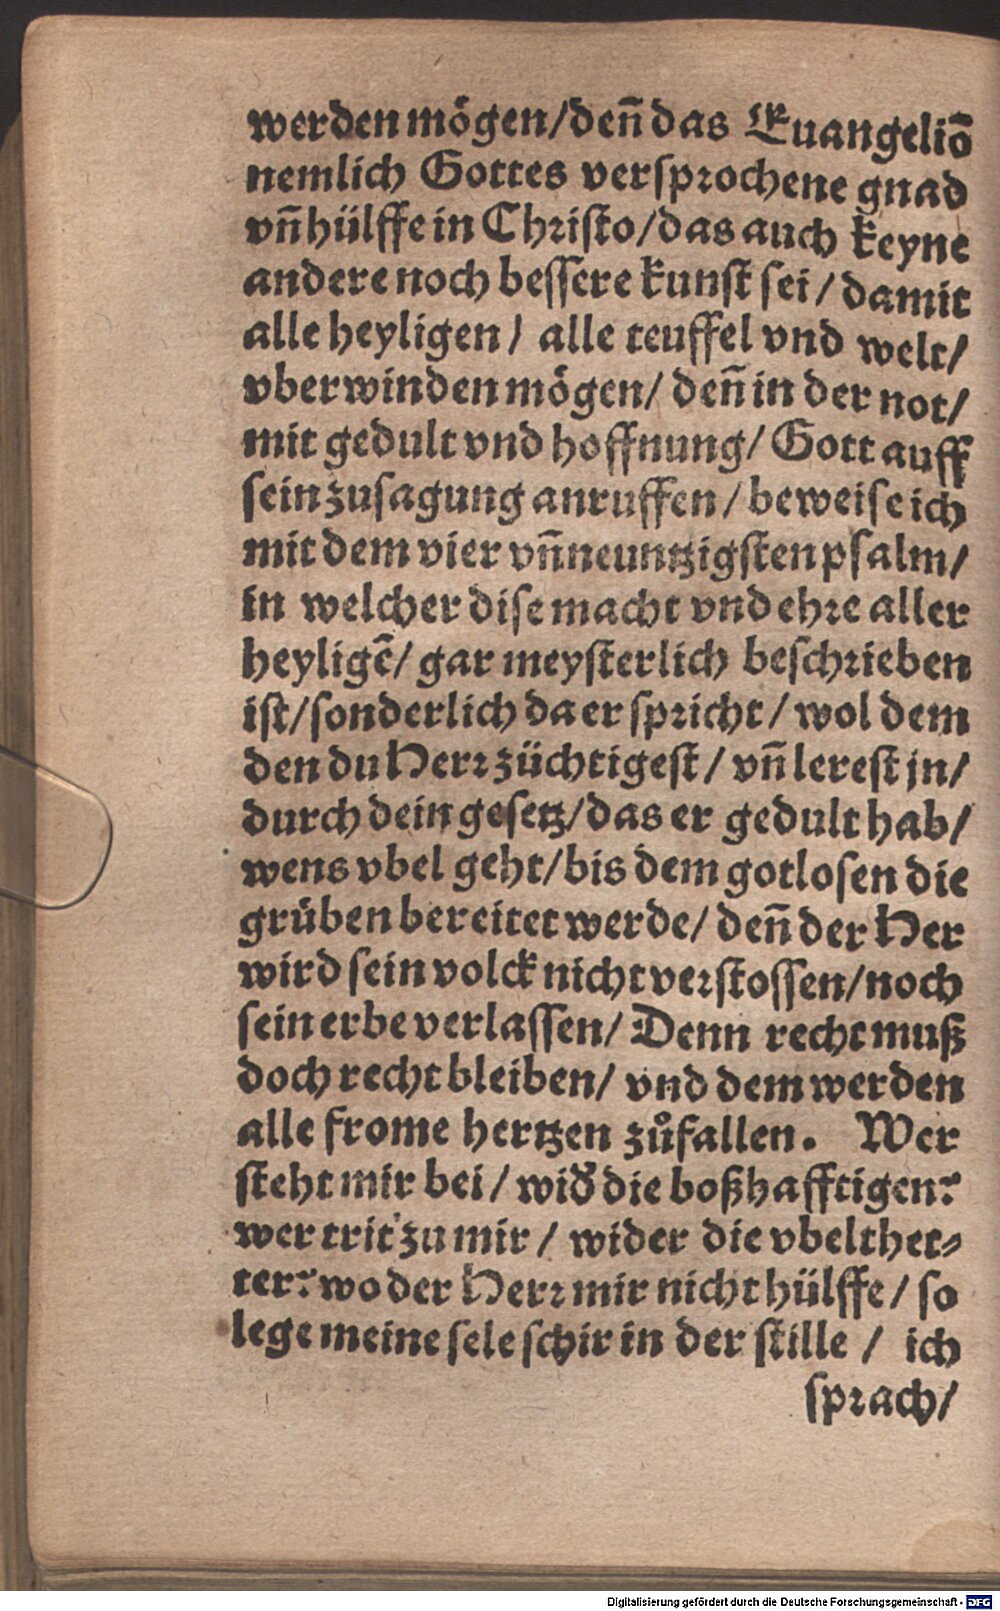 werden mögen/ deñ das Euangeliō
nemlich Gottes versprochene gnad
vñ hülffe in Christo/ das auch keyne
andere noch bessere kunst sei/ damit
alle heyligen/ alle teuffel vnd welt/
vberwinden mögen/ deñ in der not/
mit gedult vnd hoffnung/ Gott auff
sein zusagung anruffen/ beweise ich
mit dem vier vñ neuntzigsten psalm/
in welcher dise macht vnd ehre aller
heyligē/ gar meysterlich beschrieben
ist/ sonderlich da er spricht/ wol dem
den du Herr züchtigest/ vñ lerest jn/
durch dein gesetz/ das er gedult hab/
wens vbel geht/ bis dem gotlosen die
grůben bereitet werde/ deñ der Her
wird sein volck nicht verstossen/ noch
sein erbe verlassen/ Denn recht muß
doch recht bleiben/ vnd dem werden
alle frome hertzen zůfallen. Wer
steht mir bei/ wid̕ die boßhafftigen?
wer trit zu mir/ wider die vbelthet⸗
ter? wo der Herr mir nicht hülffe/ so
lege meine sele schir in der stille/ ich
sprach/
Digitalisierung gefördert durch die Deutsche Forschungsgemeinschaft - DFG